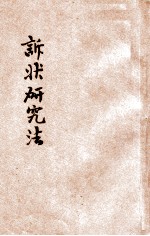 訴状研究法